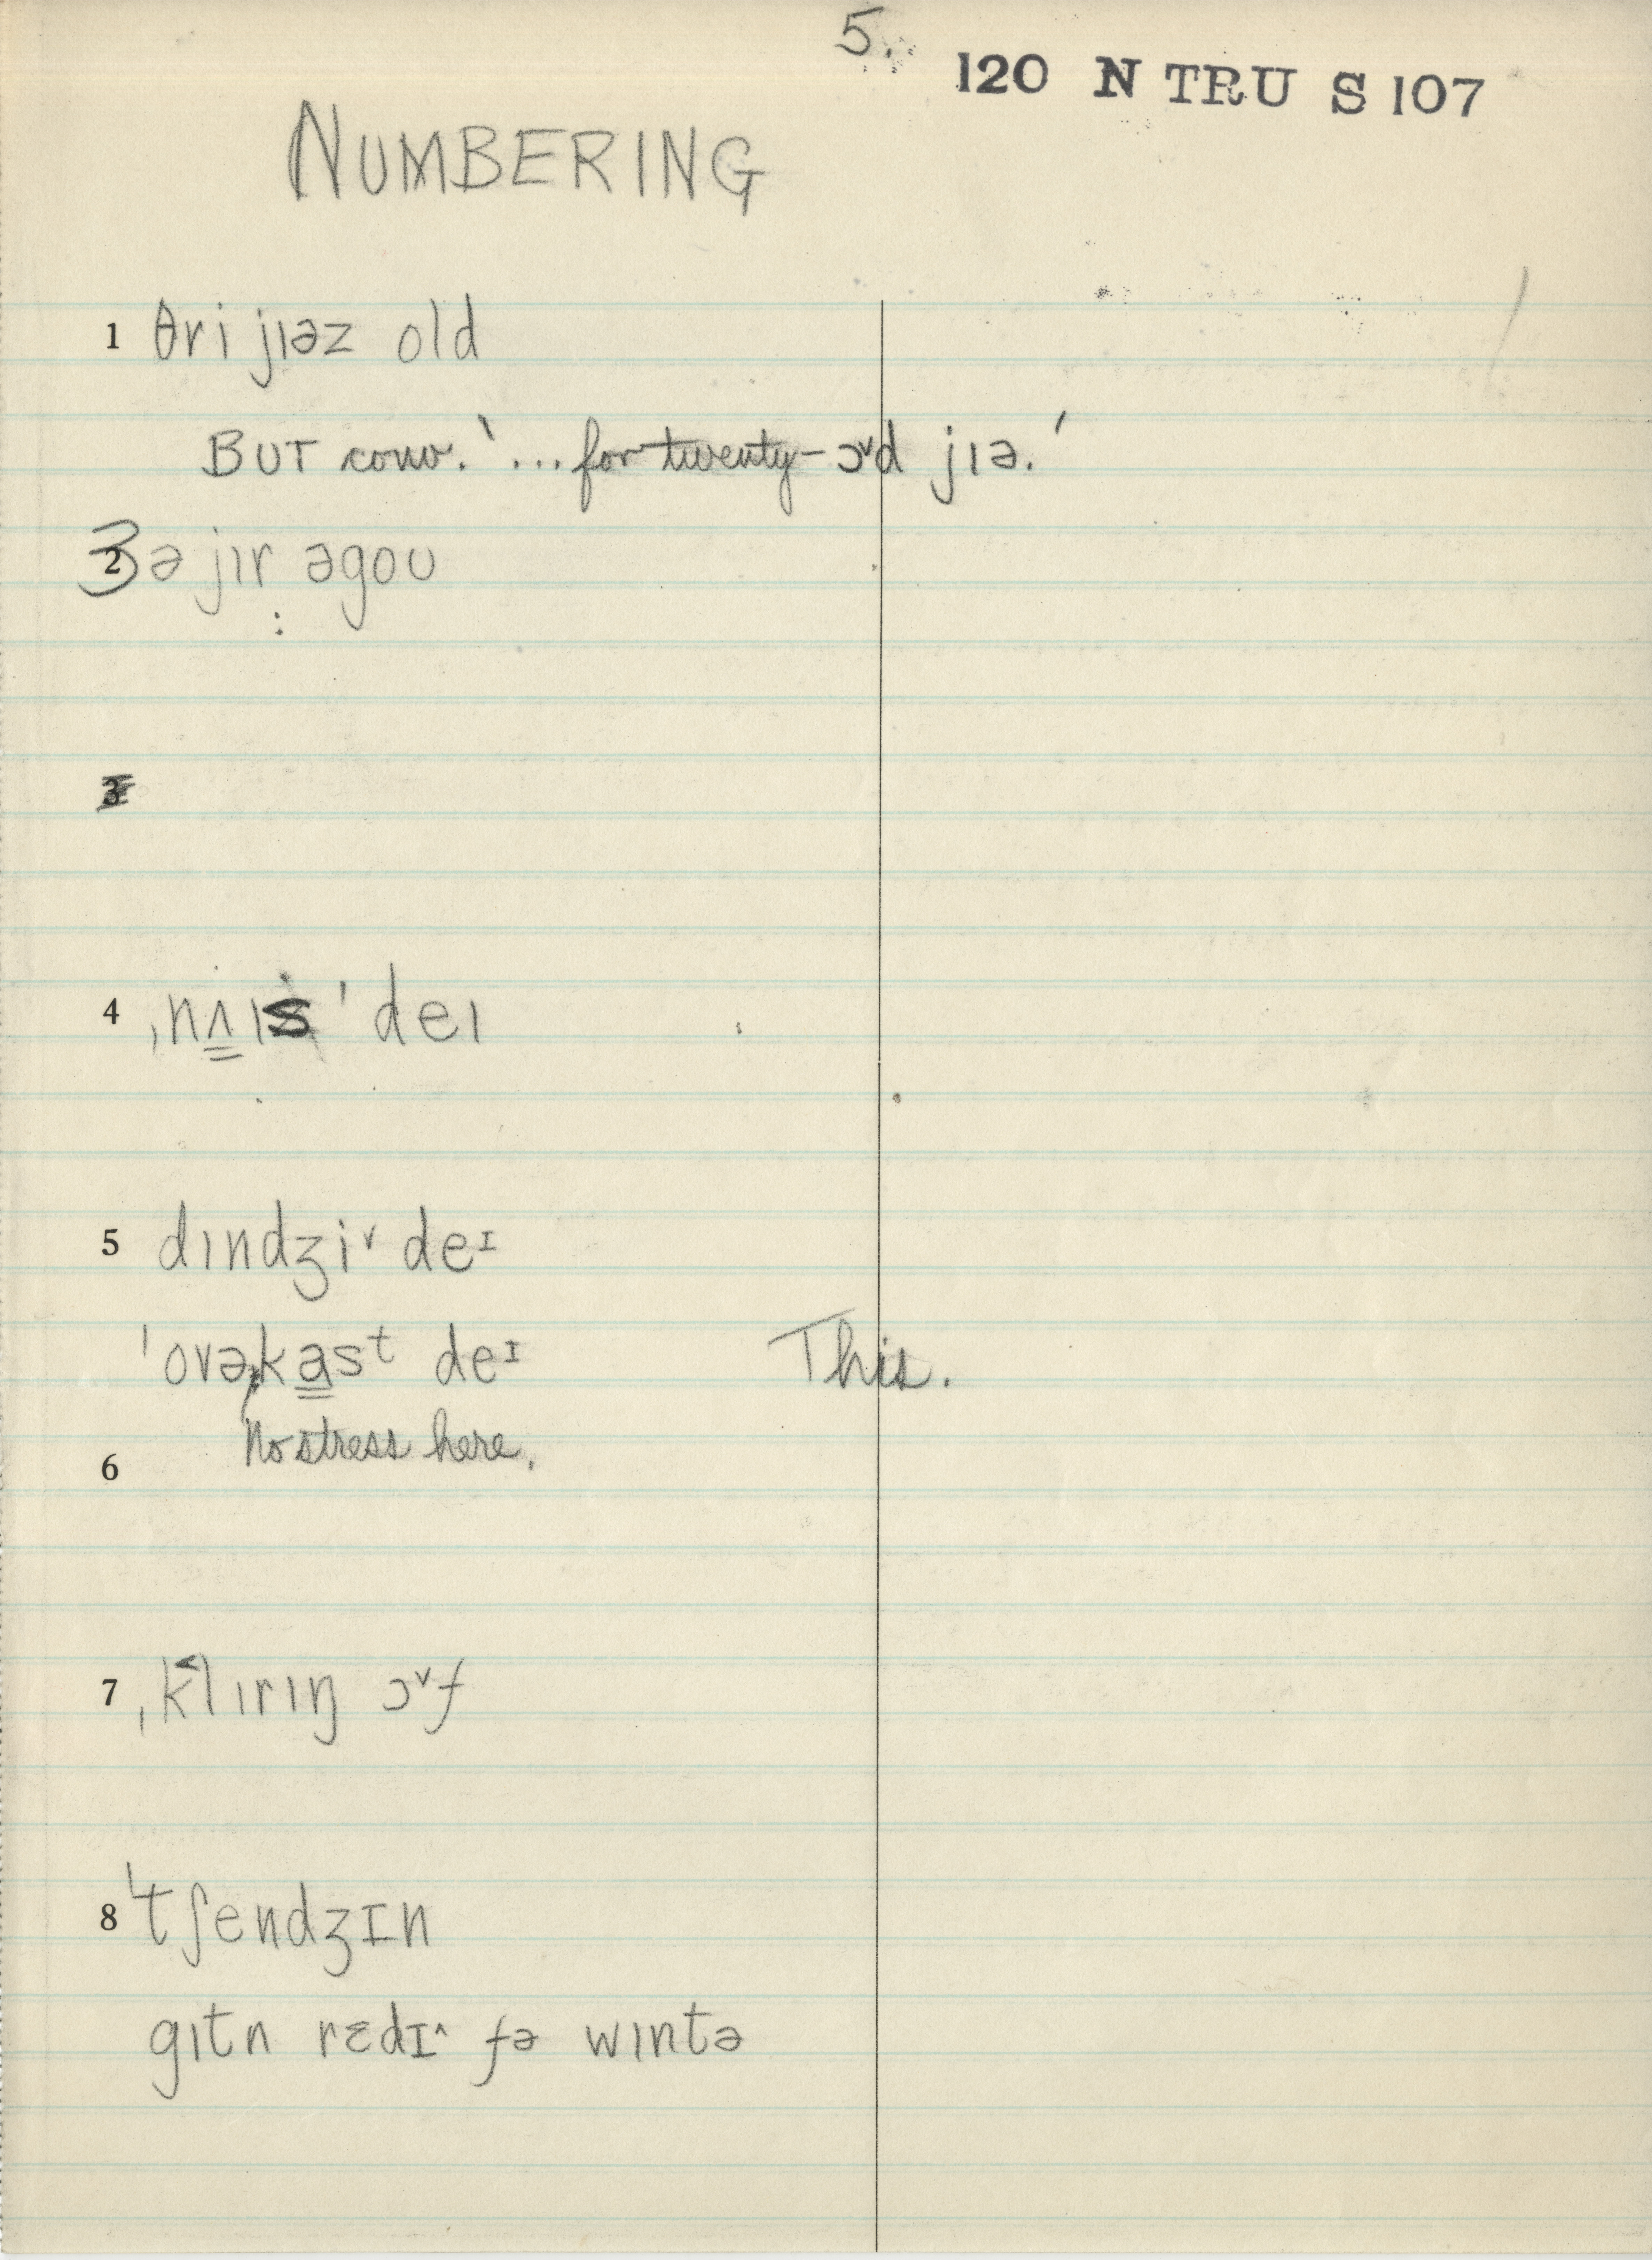 5.
120 N TRU S 107
NUMBERING
1 θri jɪəz old
BUT conv. '...for twenty-ɔ˅d jɪə.'
3 ə jɪr əgoʊ
3
4 ˌnʌ̳ɪs ˈdeɪ
5 dɪndʒi˅ deᶦ
ˈovəka̳sᵗ deᶦ This.
No stress here.
6
7 ˌk˂lɪrɪŋ ɔ˅f
8 ˈtʃendʒɪn
gɪtn rɛdɪ˄ fə wɪntə